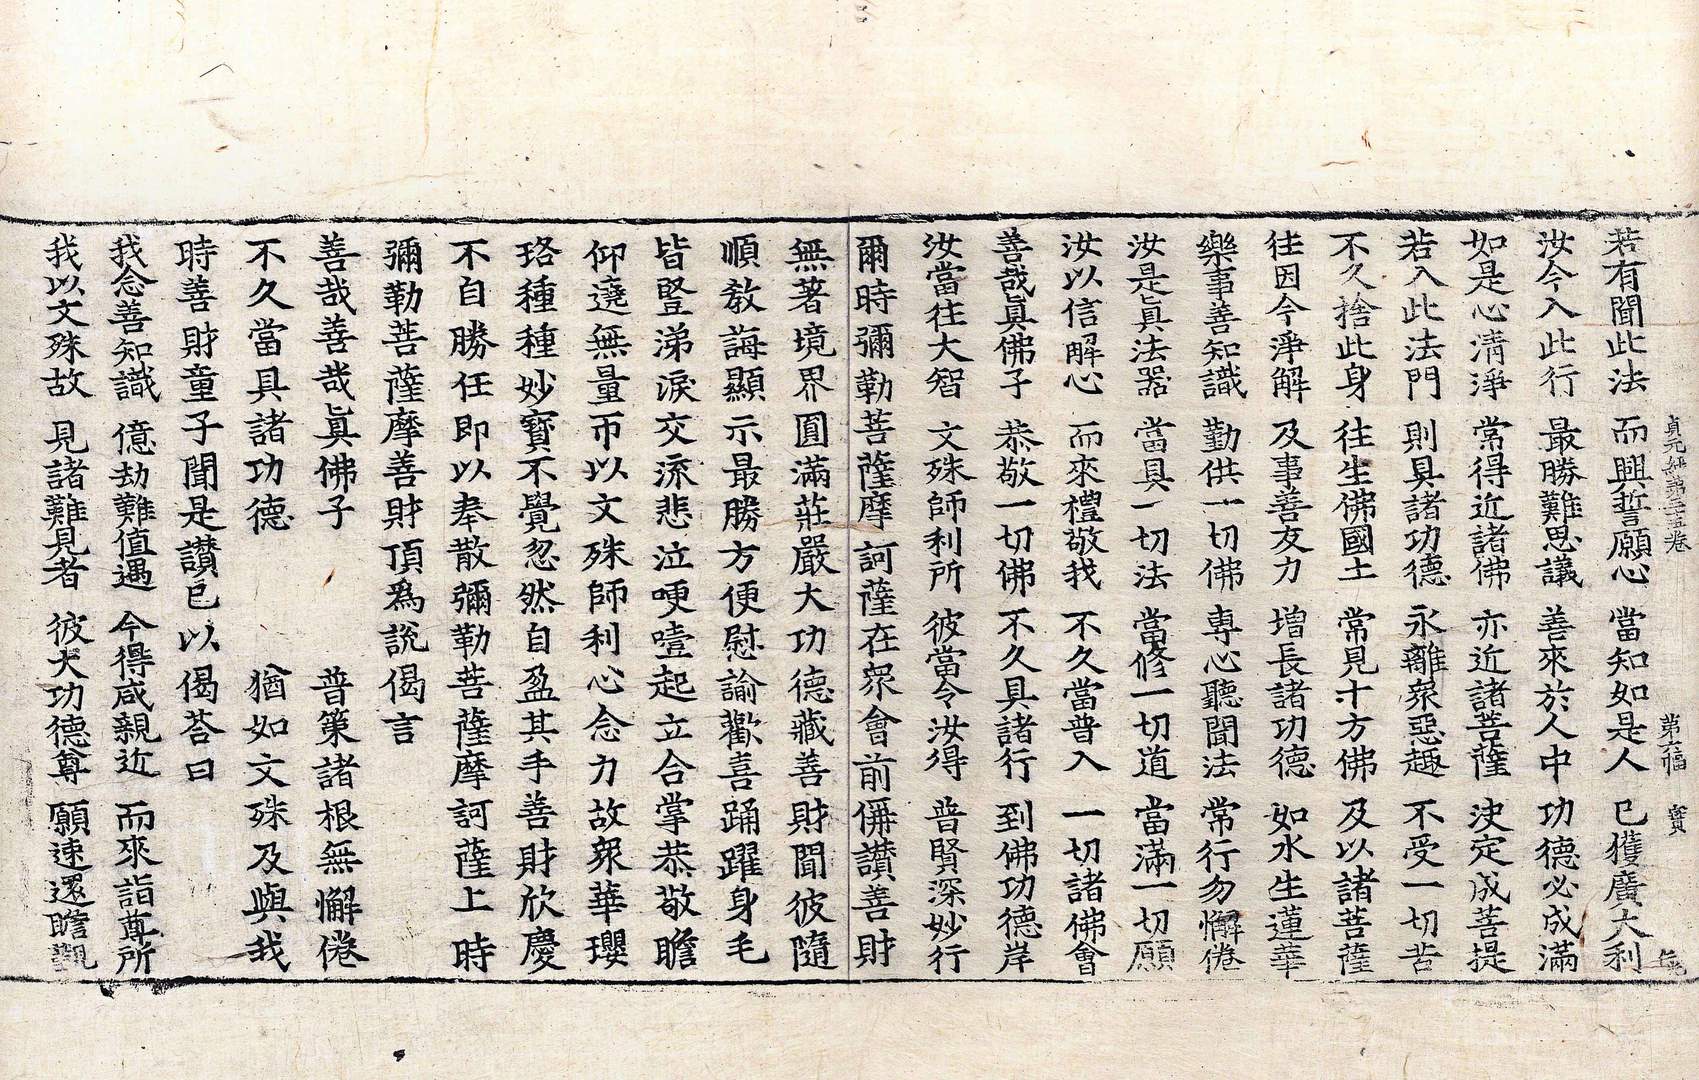 貞元經第三十五卷 第六幅 寶
若有聞此法 而興誓願心 當知如是人 已獲廣大利
汝今入此行 最勝難思議 善來於人中 功德必成滿
如是心清淨 常得近諸佛 亦近諸菩薩 決定成菩提
若入此法門 則具諸功德 永離衆惡趣 不受一切苦
不久捨此身 往生佛國土 常見十方佛 及以諸菩薩
往因今淨解 及事善友力 增長諸功德 如水生蓮華
樂事善知識 勤供一切佛 專心聽聞法 常行勿懈倦
汝是眞法器 當具一切法 當修一切道 當滿一切願
汝以信解心 而來禮敬我 不久當普入 一切諸佛會
善哉眞佛子 恭敬一切佛 不久具諸行 到佛功德岸
汝當往大智 文殊師利所 彼當令汝得 普賢深妙行
爾時彌勒菩薩摩訶薩在衆會前俻讃善財
無著境界圓滿莊嚴大功德藏善財聞彼隨
順教誨顯示最勝方便慰諭歡喜踊躍身毛
皆豎涕淚交流悲泣哽噎起立合掌恭敬瞻
仰遶無量帀以文殊師利心念力故衆華瓔
珞種種妙寶不覺忽然自盈其手善財欣慶
不自勝任即以奉散彌勒菩薩摩訶薩上時
彌勒菩薩摩善財頂爲說偈言
善哉善哉眞佛子 普策諸根無懈倦
不久當具諸功德 猶如文殊及與我
時善財童子聞是讃已以偈荅曰
我念善知識 億劫難值遇 今得咸親近 而來詣尊所
我以文殊故 見諸難見者 彼大功德尊 願速還瞻觀